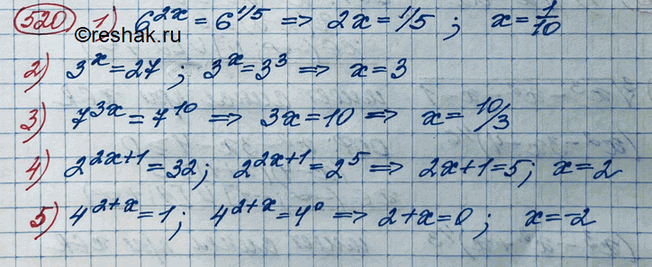 520 1) 6^{2x} = 6^{1/5} => 2x = 1/5 ; x = 1/10
©reshak.ru
2) 3^x = 27 ; 3^x = 3^3 => x = 3
3) 7^{3x} = 7^{10} => 3x = 10 => x = 10/3
4) 2^{2x+1} = 32; 2^{2x+1} = 2^5 => 2x+1 = 5; x = 2
5) 4^{2+x} = 1; 4^{2+x} = 4^0 => 2+x = 0 ; x = -2